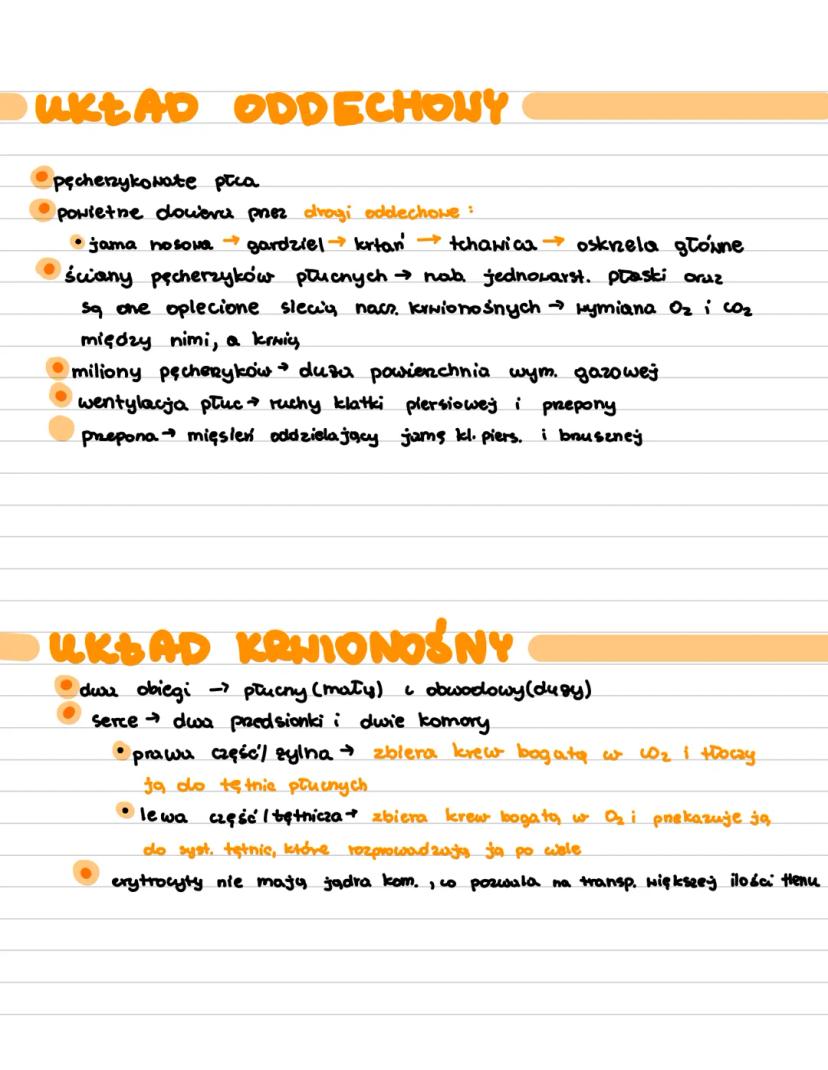 UKŁAD ODDECHOWY
pęcherzykowate płca
powietrze dociera przez drogi oddechowe :
• jama nosowa → gardziel → krtań → tchawica → oskrzela główne
ściany pęcherzyków płucnych → nab. jednowarst. płaski oraz
są one oplecione siecią nacz. krwionośnych → wymiana O₂ i CO₂
między nimi, a krwią
miliony pęcherzyków → duża powierzchnia wym. gazowej
wentylacja płuc → ruchy klatki piersiowej i przepony
przepona → mięsień oddzielający jamę kl. piers. i brusznej
UKŁAD KRWIONOŚNY
dwa obiegi → płucny (mały) i obwodowy (duży)
serce → dwa przedsionki i dwie komory
• prawa część / żylna → zbiera krew bogatą w CO₂ i tłoczy
ją do tętnic płucnych
• lewa część / tętnicza → zbiera krew bogatą w O₂ i przekazuje ją
do syst. tętnic, które rozprowadzają ją po ciele
erytrocyty nie mają jądra kom. , co pozwala na transp. większej ilości tlenu